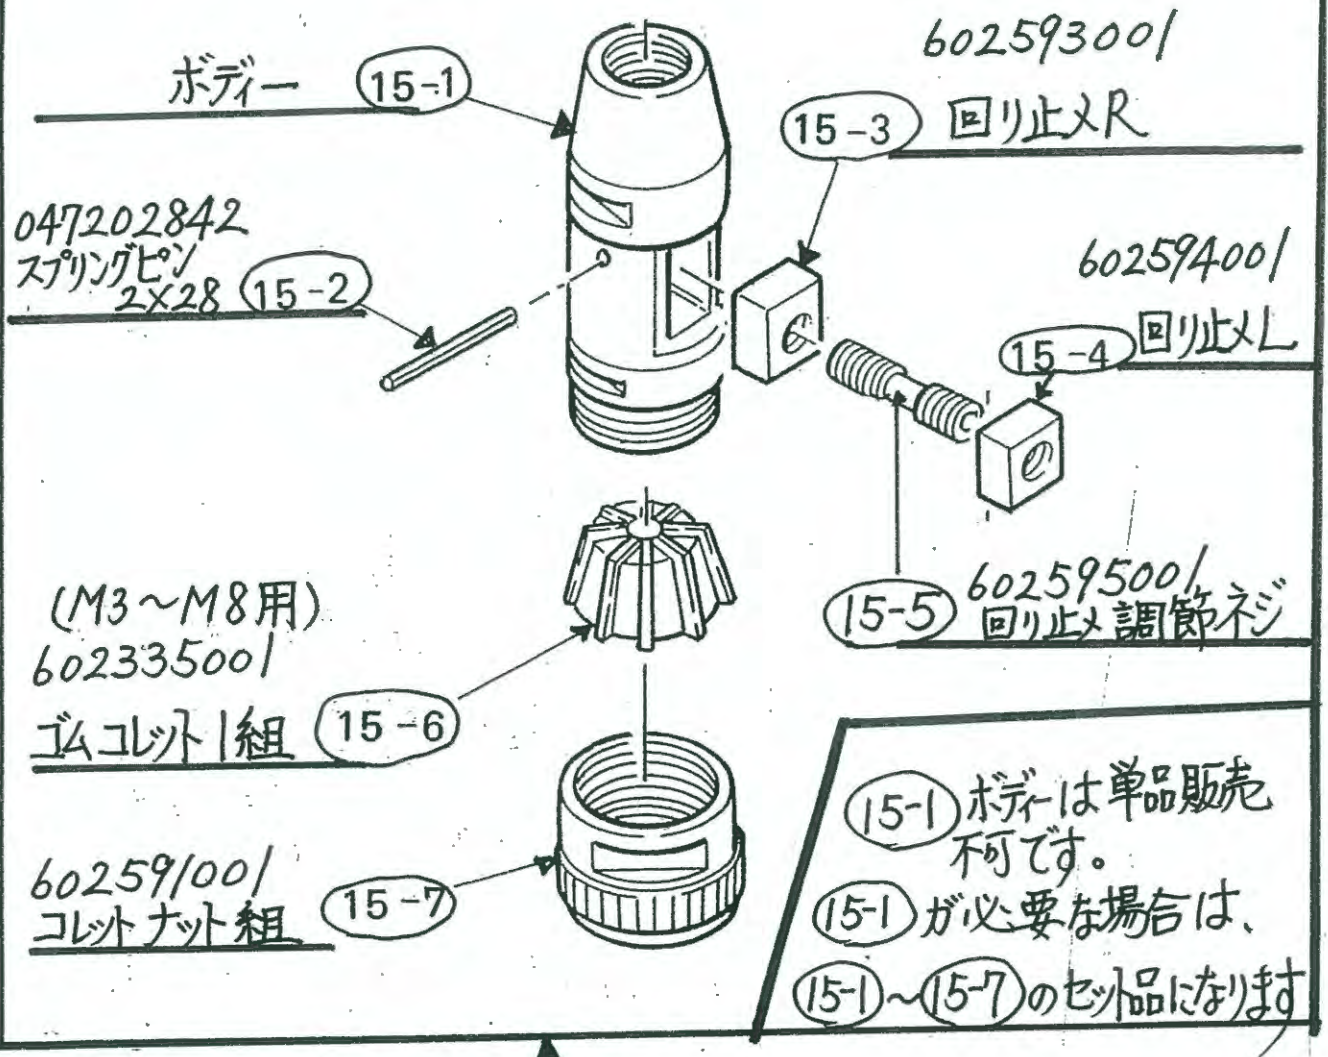 ボディー 15-1
602593001
15-3 回り止メR
047202842
スプリングピン
2×28 15-2
602594001
15-4 回り止メL
(M3~M8用)
602335001
ゴムコレット1組 15-6
602595001
15-5 回り止メ調節ネジ
602591001
コレットナット組 15-7
15-1 ボディーは単品販売
不可です。
15-1 が必要な場合は、
15-1~15-7のセット品になります